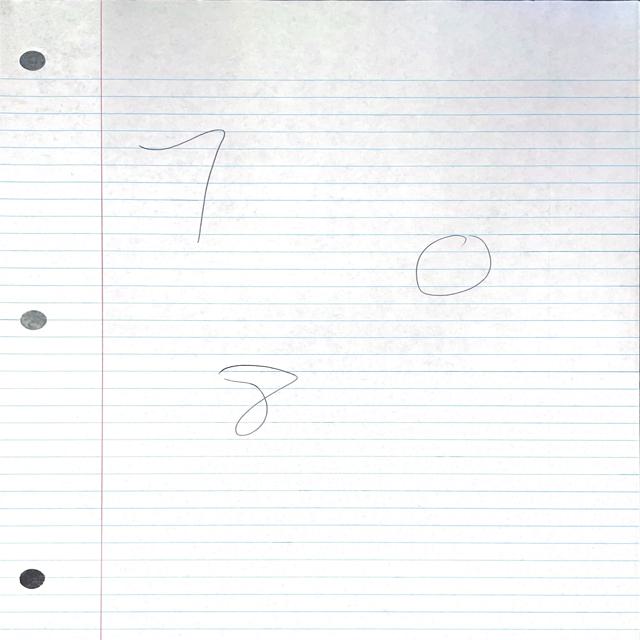 7
0
8